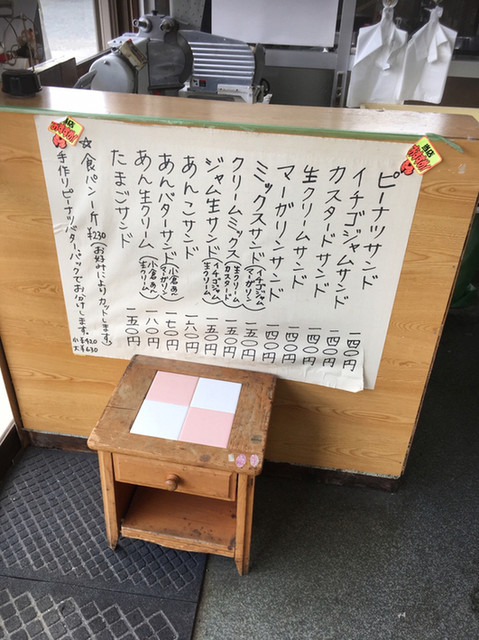 ピーナツサンド 一四〇円
イチゴジャムサンド 一四〇円
カスタードサンド 一四〇円
生クリームサンド 一四〇円
マーガリンサンド 一四〇円
ミックスサンド(イチゴジャム マーガリン) 一五〇円
クリームミックス(生クリーム カスタード) 一五〇円
ジャム生サンド(イチゴジャム 生クリーム) 一五〇円
あんこサンド 一六〇円
あんバターサンド(小倉あん マーガリン) 一七〇円
あん生クリーム(小倉あん 生クリーム) 一八〇円
たまごサンド 一五〇円
☆食パン一斤¥230(お好みによりカットします)
手作りピーナツバターパックでお分けします。小¥420 大¥630